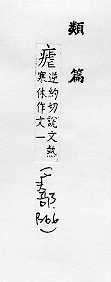 類篇
瘧逆約切說文熱
寒休作文一
(疒部
P.266)